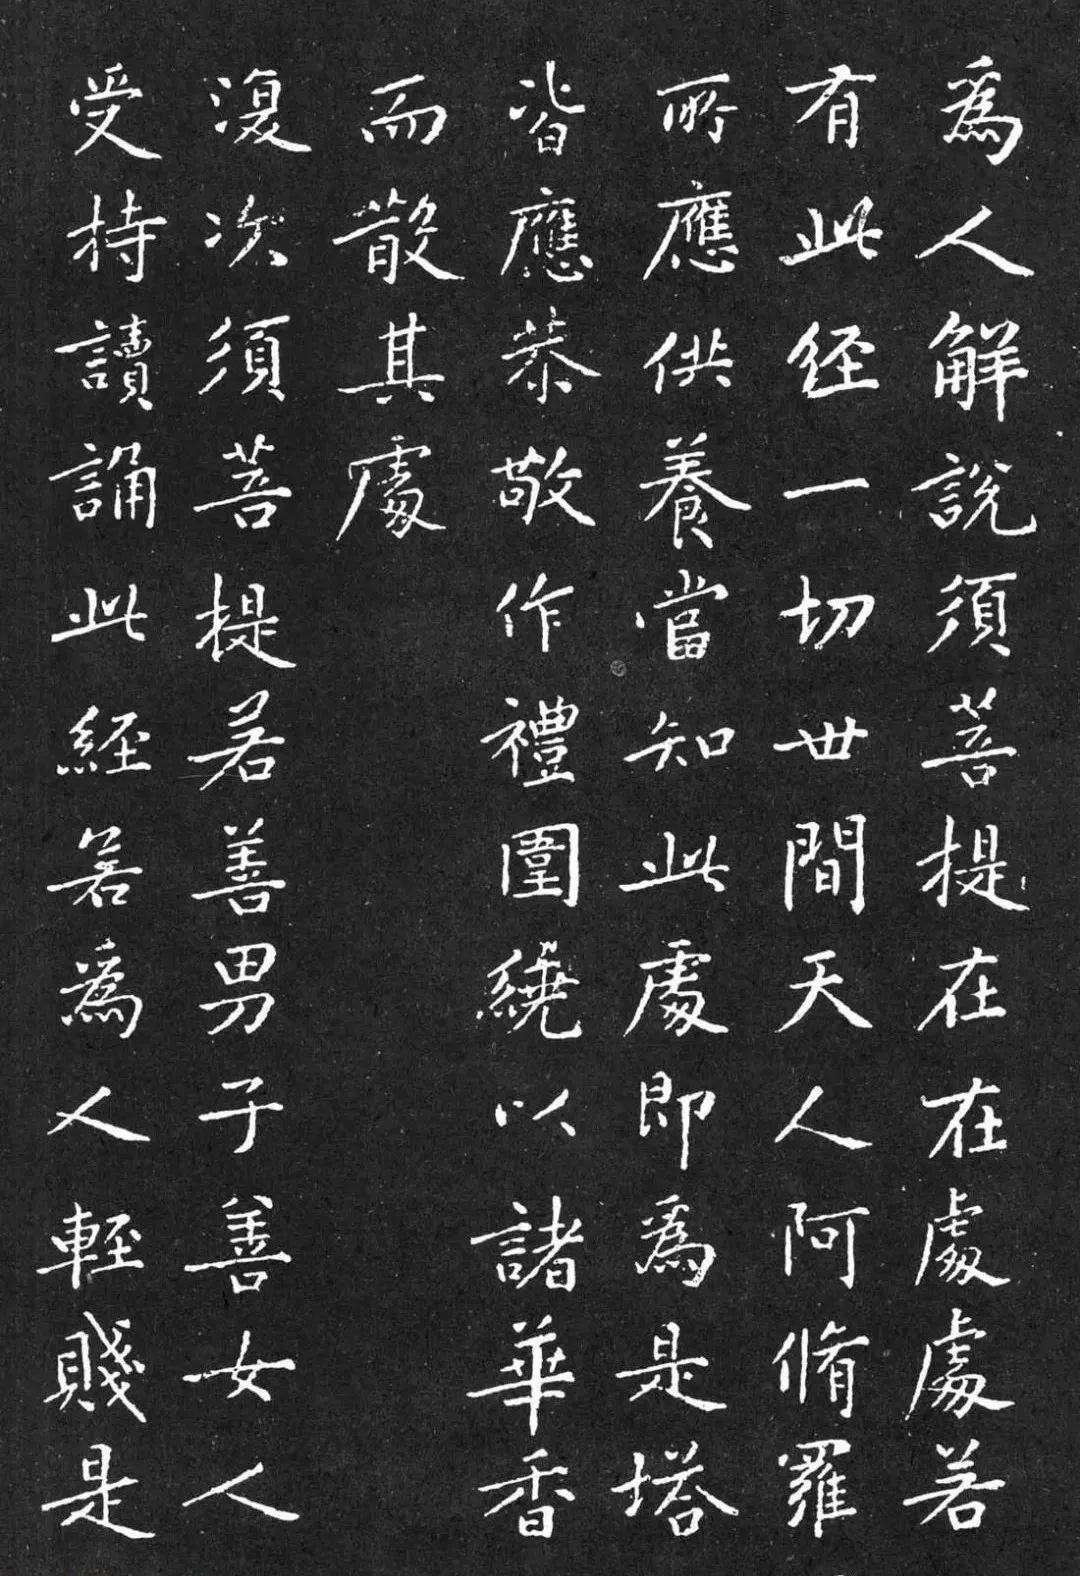 為人解説須菩提在在處處若
有此経一切世間天人阿脩羅
所應供養當知此處即為是塔
皆應恭敬作禮圍繞以諸華香
而散其處
復次須菩提若善男子善女人
受持讀誦此経若為人輕賤是